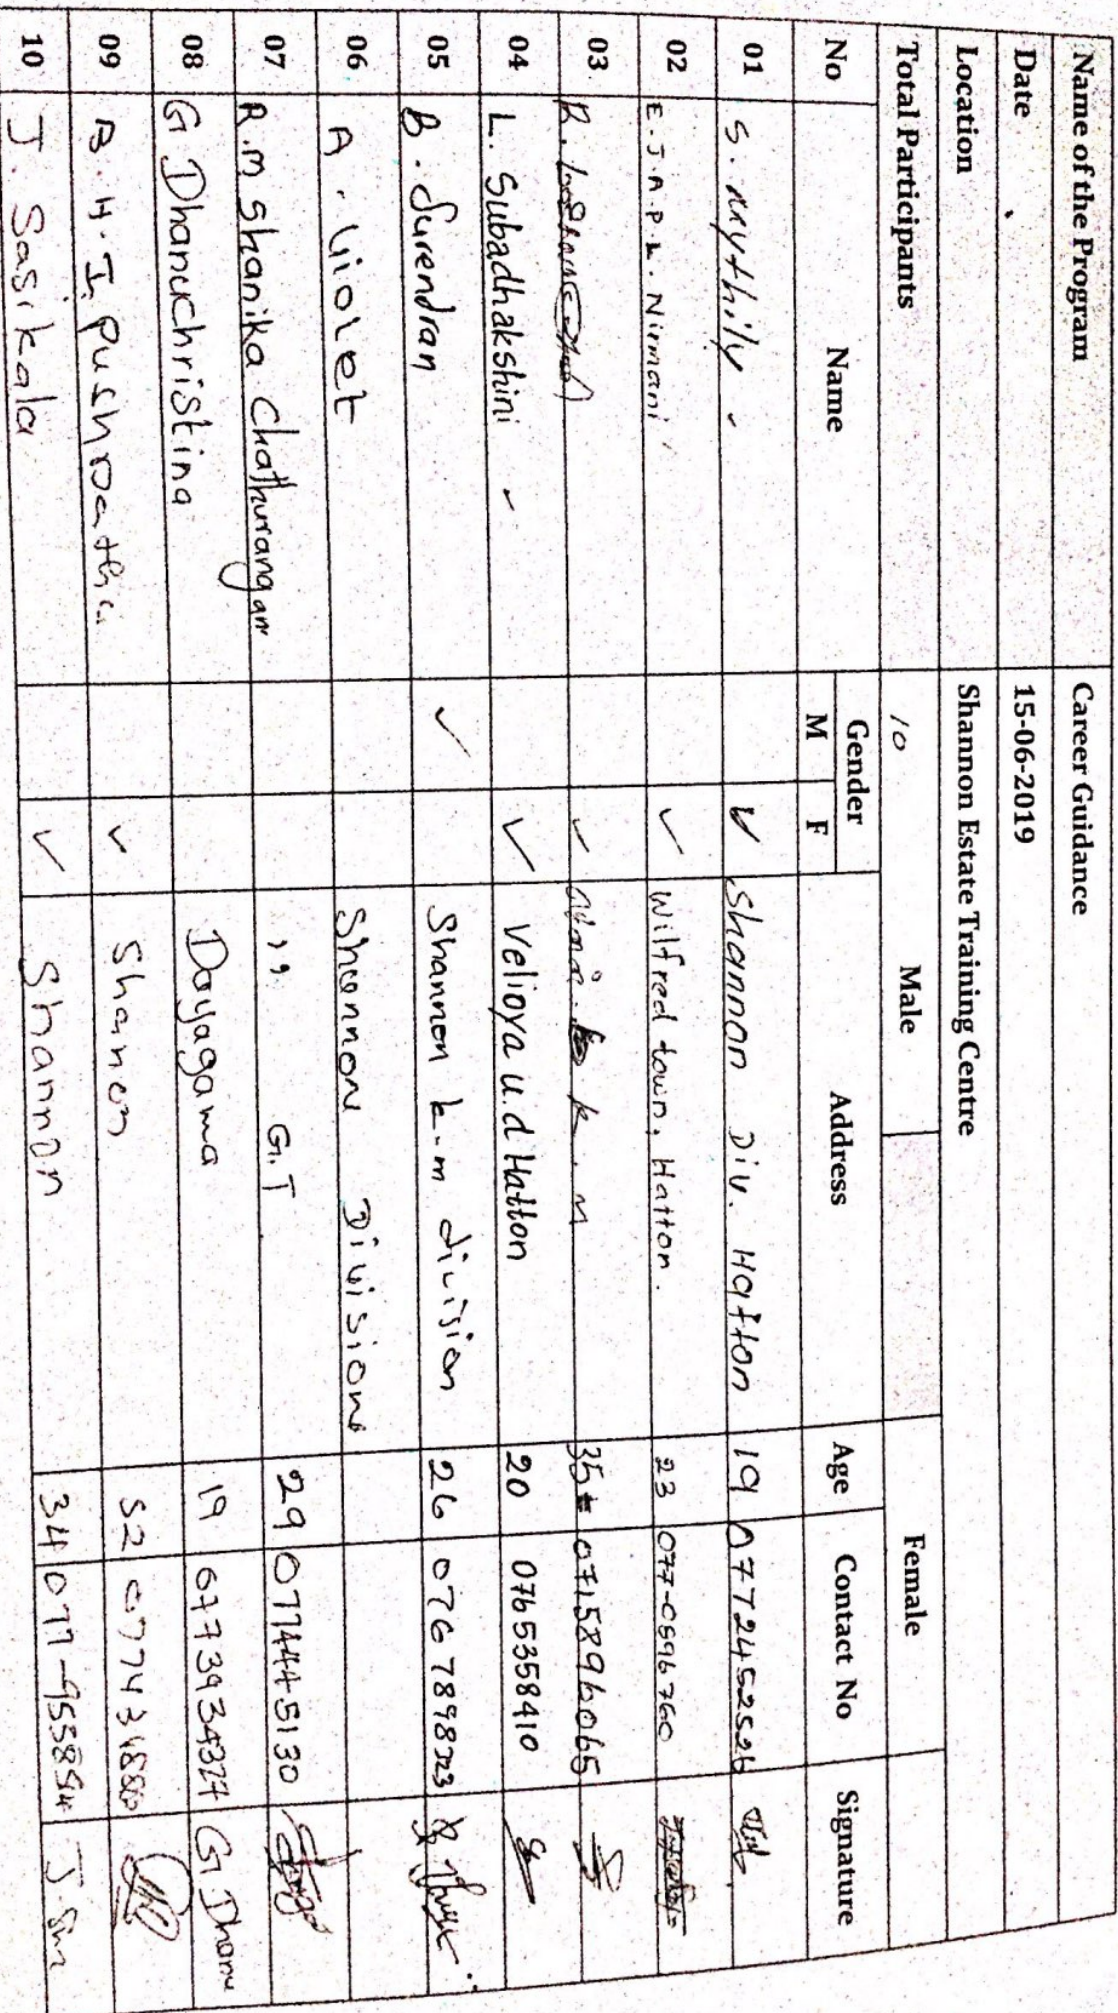 Name of the Program Career Guidance
Date 15-06-2019
Location Shannon Estate Training Centre
Total Participants 10 Male Female
No Name Gender M F Address Age Contact No Signature
01 S. mythily ✓ Shannon Div. Hatton 19 0772452526
02 E.J.A.P.L. Nirmani ✓ Wilfred town, Hatton. 23 077-0596760
03 R. ✓ k.m 35 0715896065
04 L. Subadhakshini ✓ Velioya u.d Hatton 20 0765358410
05 B. Surendran ✓ Shannon k-m division 26
06 A. Violet Shannon Division
07 R.m Shanika Chathurangan ,, G.T 29 0774445130
08 G Dhanuchristina Dayagama 19 G Dhanu
09 B.H.I. Pushpathi ✓ Shanon 52
10 J. Sasikala ✓ Shannon 34